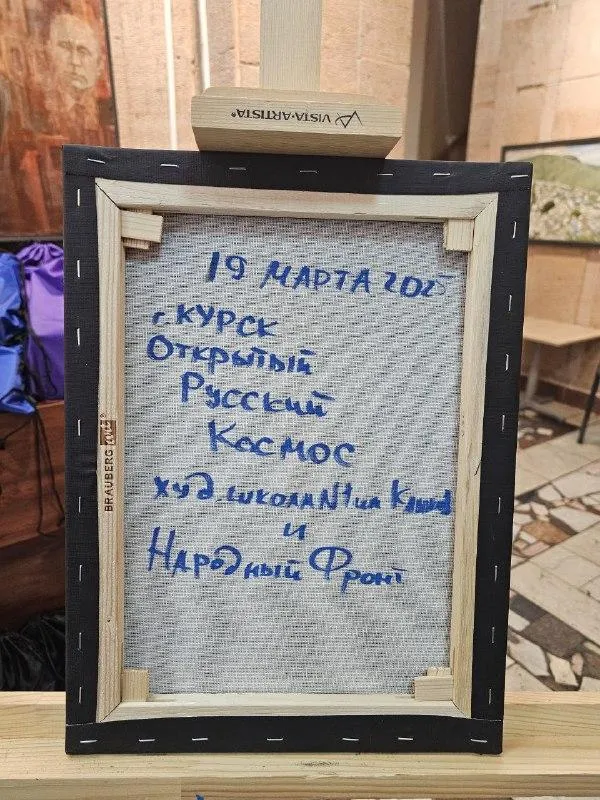 VISTA-ARTISTA®
19 МАРТА 2025
г. КУРСК
Открытый
Русский
Космос
худ. школа №1 им
и
Народный Фронт
BRAUBERG